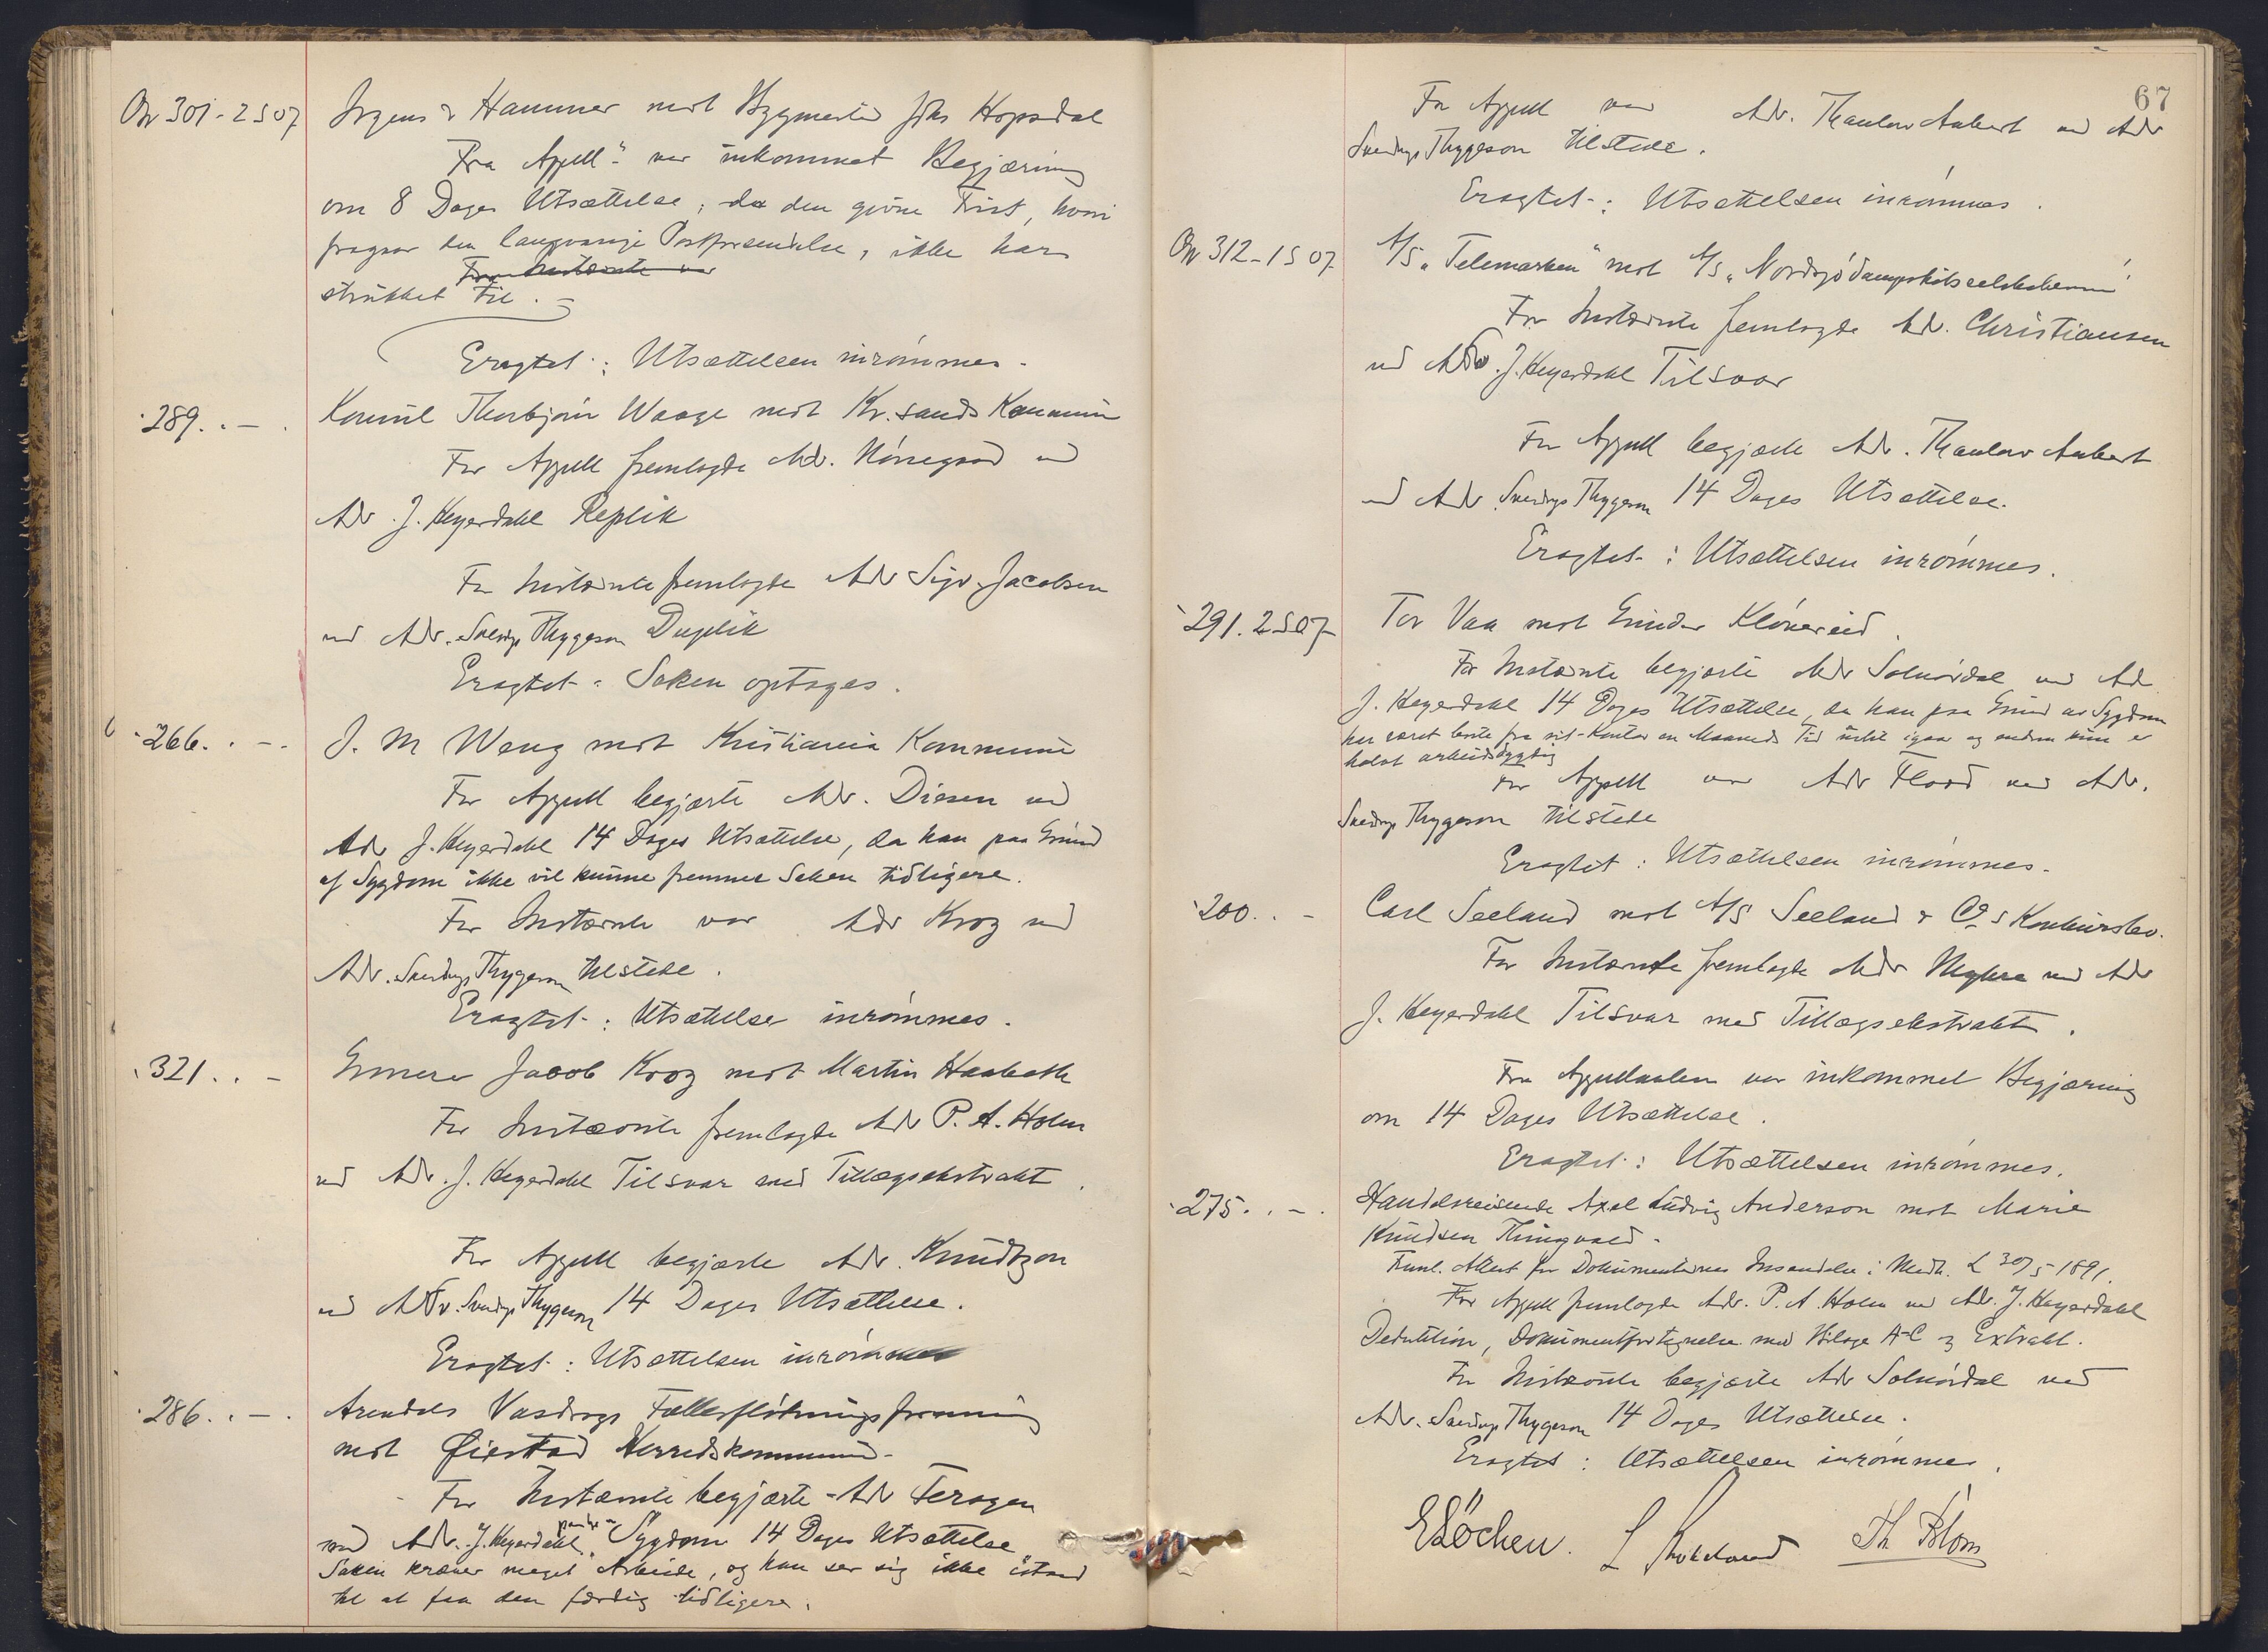 301 - 2 S 07
& Hammer mot Bygmester Johs Hopsdal
Fra Appell. var inkommet Begjæring
om 8 Dages Utsættelse, da den givne Frist, hvori
den langvarige Postforsendelse, ikke har
Fra Instævnte var
strukket til.
Eragtet: Utsættelsen inrømmes.
289. . — .
Konsul Thorbjørn Waage mot Kr.sands Kommune
For Appell fremlagde Adv. ved
Adv. J. Heyerdahl Replik
For Instævnte fremlagde Adv Sigv. Jacobsen
ved Adv. Sverdrup Thygeson Duplik
Eragtet: Saken optages.
266. . — .
J. M Weng mot Kristiania Kommune
For Appell begjærte Adv. Diesen ved
Adv J. Heyerdahl 14 Dages Utsættelse, da han paa Grund
af Sygdom ikke vil kunne fremme Saken tidligere.
For Instævnte var Adv Krog ved
Adv. Sverdrup Thygeson tilstede.
Eragtet: Utsættelse inrømmes.
321. . —
Jacob Krog mot Martin Haabeth
For Instævnte fremlagde Adv P. A. Holm
ved Adv. J. Heyerdahl Tilsvar med Tillægsekstrakt.
For Appell begjærte Adv. Knudtzon
ved Adv. Sverdrup Thygeson 14 Dages Utsættelse.
Eragtet: Utsættelsen inrømmes
286. . — .
Arendals Vasdrags Fællesfløtningsforening
mot Øiestad Herredskommune.
For Instævnte begjærte Adv
ved Adv. J. Heyerdahl Sygdom 14 Dages Utsættelse
Saken kræver meget Arbeide, og han ser sig ikke istand
til at faa den færdig tidligere.
67
For Appell var Adv. Thaulow Aubert ved Adv
Sverdrup Thygeson tilstede.
Eragtet: Utsættelsen inrømmes.
312 - 1 S 07
A/S „Telemarken" mot A/S „Nordsjødampskibsselskabernes"
For Instævnte fremlagde Adv. Christiansen
ved Adv. J. Heyerdahl Tilsvar
For Appell begjærte Adv. Thaulow Aubert
ved Adv Sverdrup Thygeson 14 Dages Utsættelse.
Eragtet: Utsættelsen inrømmes.
291. 2 S 07
Tor Vaa mot
For Instævnte begjærte Adv Solnørdal ved Adv
J. Heyerdahl 14 Dages Utsættelse, da han paa Grund av Sygdom
har været borte fra sit Kontor en Maaneds Tid igaar og endnu kun er
halvt arbeidsdygtig
For Appell var Adv Flood ved Adv.
Sverdrup Thygeson tilstede
Eragtet: Utsættelsen inrømmes.
200. . —
Carl Seeland mot A/S Seeland & Co s Konkursbo.
For Instævnte fremlagde Adv ved Adv
J. Heyerdahl Tilsvar med Tillægsekstrakt.
Fra Appellanten var inkommet Begjæring
om 14 Dages Utsættelse.
Eragtet: Utsættelsen inrømmes.
275. . — .
Handelsreisende Axel Ludvig Anderson mot Marie
Knudsen Thingvold.
Attest for Dokumenternes Insendelse i Medh. L 30/5 1891.
For Appell fremlagde Adv. P. A. Holm ved Adv. J. Heyerdahl
Deduktion, Dokumentfortegnelse med Bilage A-C og Extrakt.
For Instævnte begjærte Adv Solnørdal ved
Adv. Sverdrup Thygeson 14 Dages Utsættelse.
Eragtet: Utsættelsen inrømmes.
E Löchen. Th Blom